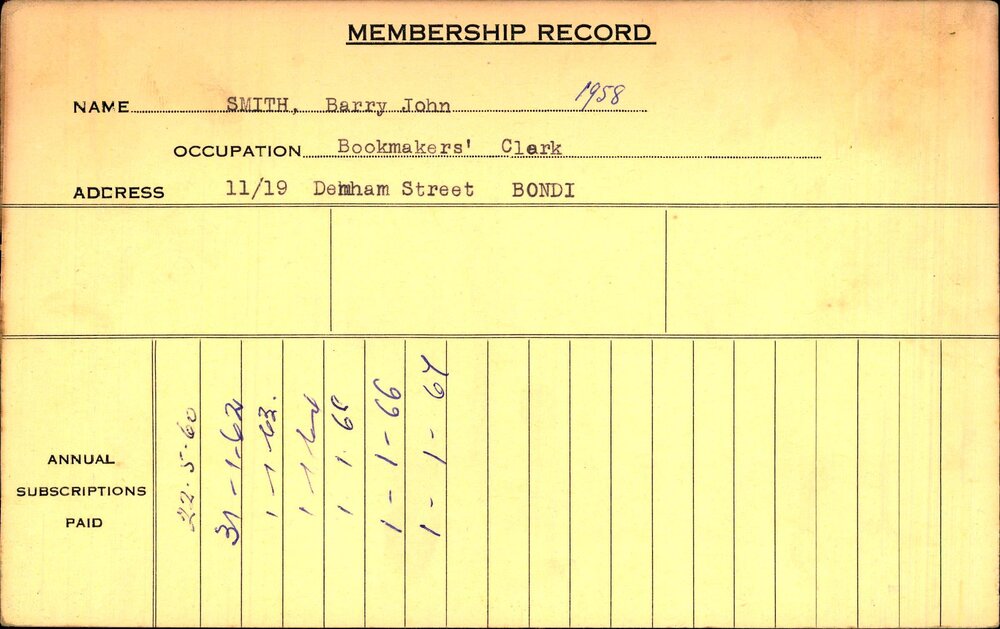 MEMBERSHIP RECORD
NAME SMITH, Barry John 1958
OCCUPATION Bookmakers' Clerk
ADDRESS 11/19 Denham Street BONDI
ANNUAL
SUBSCRIPTIONS
PAID
22-5-60
31-1-62
1-1-63.
1-1-64
1-1-65
1-1-66
1-1-67